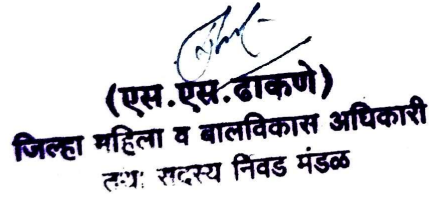 (एस.एस.ढाकणे)
जिल्हा महिला व बालविकास अधिकारी
तथा सदस्य निवड मंडळ